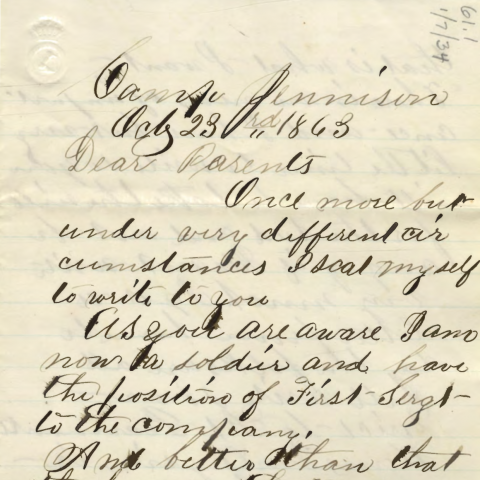 61.1
1/7/34
Camp Jennison
Oct 23rd " 1863
Dear Parents
Once more but
under very different cir
cumstances I seat myself
to write to you
As you are aware I am
now a soldier and have
the position of First Sergt
to the company.
And better than that